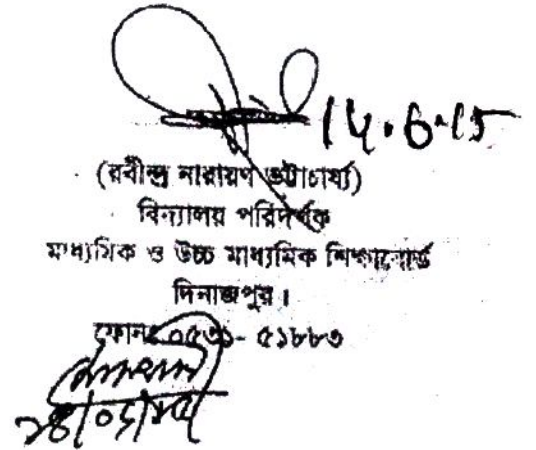 14.6.15
(রবীন্দ্র নারায়ণ ভট্টাচার্য্য)
বিদ্যালয় পরিদর্শক
মাধ্যমিক ও উচ্চ মাধ্যমিক শিক্ষাবোর্ড
দিনাজপুর।
ফোনঃ ০৫৩১- ৫১৮৮৩